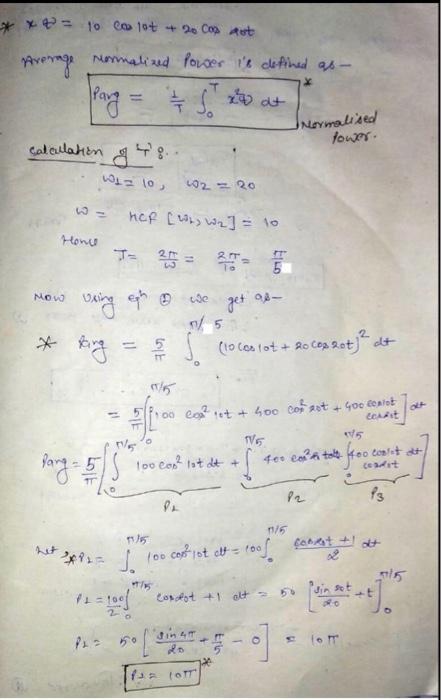 * x(t) = 10 cos 10t + 20 cos 20t
Average Normalized Power is defined as —
Pavg = 1/T ∫₀ᵀ x²(t) dt *
Normalised Power.
Calculation of "T":
ω1 = 10, ω2 = 20
ω = HCF [ω1, ω2] = 10
Hence
T = 2π/ω = 2π/10 = π/5
Now Using eqⁿ ① we get as—
* Pavg = 5/π ∫₀^π/5 (10 cos 10t + 20 cos 20t)² dt
= 5/π ∫₀^π/5 [100 cos² 10t + 400 cos² 20t + 400 cos10t cos20t] dt
Pavg = 5/π [∫₀^π/5 100 cos² 10t dt + ∫₀^π/5 400 cos² 20t dt + ∫₀^π/5 400 cos10t cos20t dt]
P1 P2 P3
Let * P1 = ∫₀^π/5 100 cos² 10t dt = 100 ∫₀^π/5 (cos20t + 1)/2 dt
P1 = 100/2 ∫₀^π/5 cos20t + 1 dt = 50 [sin 20t/20 + t]₀^π/5
P1 = 50 [sin 4π/20 + π/5 - 0] = 10π
P1 = 10π *